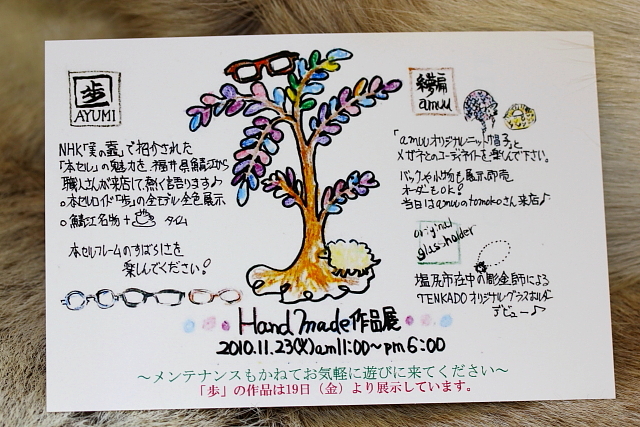 歩
AYUMI
NHK「美の壺」で紹介された
「本セル」の魅力を、福井県鯖江から
職人さんが来店して熱く語ります♪
○本セルロイド「歩」の全モデル全色展示
○鯖江名物+ タイム
本セルフレームのすばらしさを
楽しんでください!
amuu
「amuuオリジナルニット帽子」と
メガネとのコーディネイトを楽しんで下さい。
バックや小物も展示即売
オーダーもOK!
当日はamuuのtomokoさん来店♪
original
glass-holder
塩尻市在中の彫金師による
TENKADOオリジナルグラスホルダー
デビュー♪
Hand made作品展
2010.11.23(火)am11:00~pm6:00
~メンテナンスもかねてお気軽に遊びに来てください~
「歩」の作品は19日(金)より展示しています。